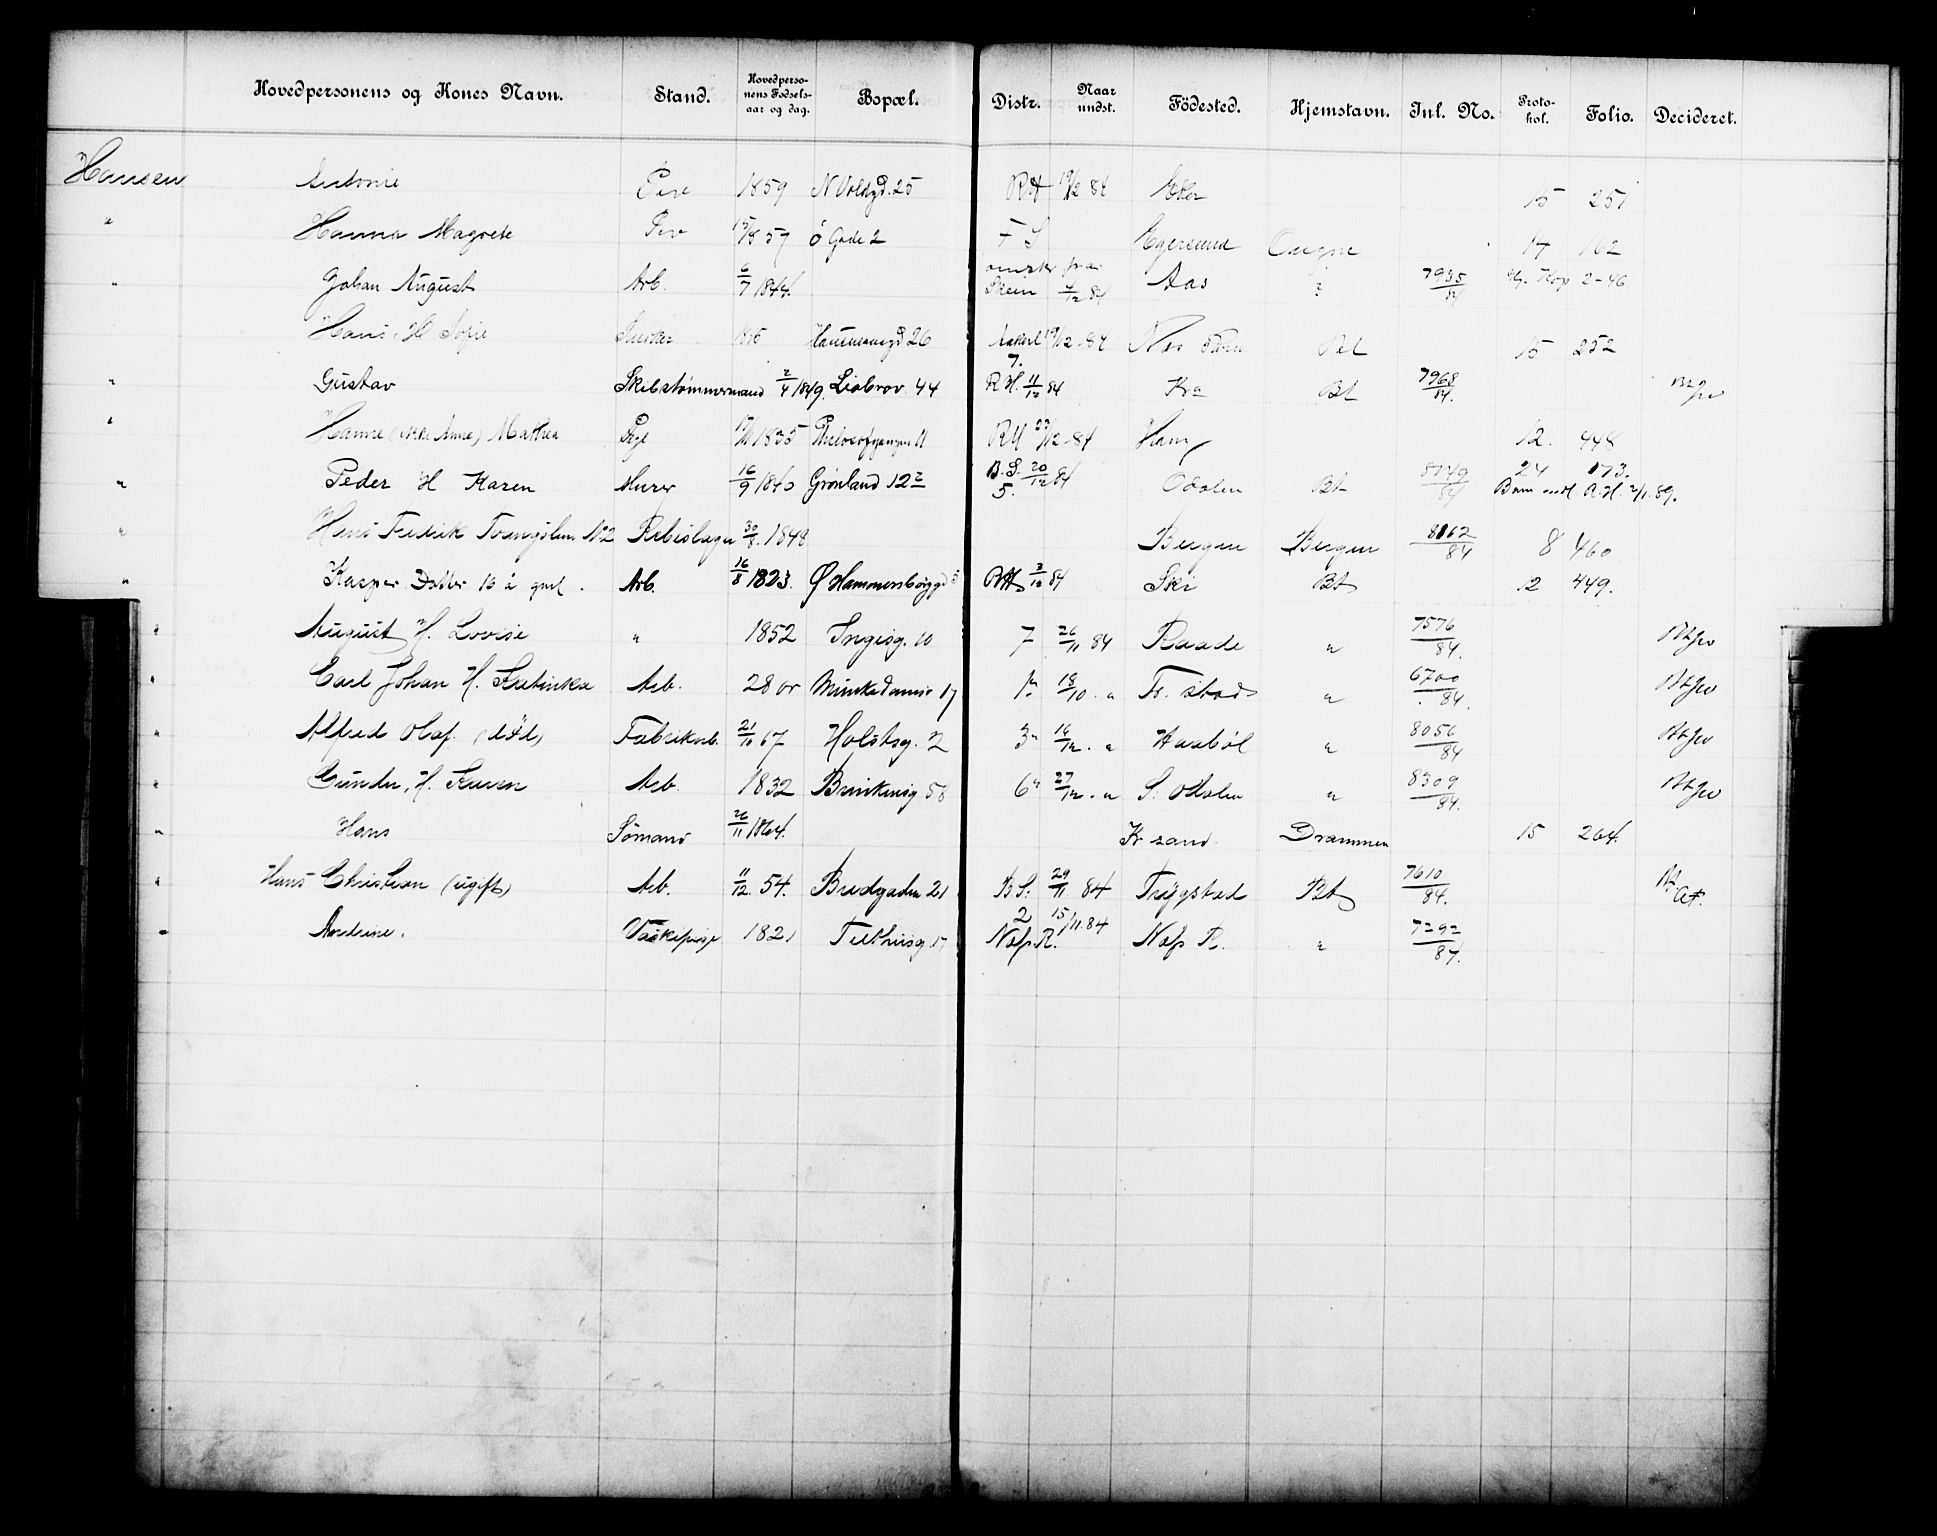 Hovedpersonens og Kones Navn. Stand. Hovedperso-nens Fødsels-aar og dag. Bopæl. Distr. Naar undst. Födested. Hjemstavn. Jnl. No. Proto-kol. Folio. Decideret.
Hansen Antonie Pige 1859 N Voldgd. 25 RH 19/12 84 Eker 15 251
" Hanna Magrete 15/8 57 ö Gade 2 Egersund 17 162
" Johan August Arb. 6/7 1844. Skien 4/12 84 Aas ? 7935/84 2-46
Hans. H Sofie Hausmannsgd 26 Akersl 19/12 84 Nes 15 252
" Gustav Skibstømmermand 2/4 1849. Liabrov. 44 7. R.H. 11/12 84 Kra Bt 7968/84.
" Hanne (ikke Anne) Mathea Pige 1835 Philosofgangen 11 RH 27/12 84 Ham 12. 448
" Peder H Karen Murer 16/9 1840 Grønland 12 B.S. 20/12 84 5. Odalen Bt 8149/84 24 173. Barn indl R.H. 2/1. 89.
" Hans Fredrik No 2 Rebslager 30/8. 1848 Bergen Bergen 8162/84 8 460
" Kasper Datter 16 å gml. Arb. 16/8 1823. Ø Hammersborggd 5 RH 3/12 84 Ski Bt 12 449.
" August H. Lovise " 1852 Ingisg. 10 7 26/11 84 Raade " 7576/84.
" Carl Johan H. Katinka Arb. 28 år Munkedamsv 17 18/10. " Fr. stad " 6700/84.
" Alfred Olaf. (død) Fabrikarb. 21/10 67 Holstsg. 2 3 16/12. " Haabøl " 8056/84
" Gunder, H. Karen Arb. 1832 Brinkensg 58 6 27/12. " S. Odalen " 8309/84.
" Hans Sømand 26/11 1864. Kr sand Drammen 15 264.
" Hans Christian (ugift) Arb. 11/12. 54. Bredgaden 21 B.S. 29/11 84 Trygstad Bt 7610/84.
" Andrine. Vaskepige 1821 Telthusg. 17 2 15/11. 84 Næs R. Næs R. " 7292/84.